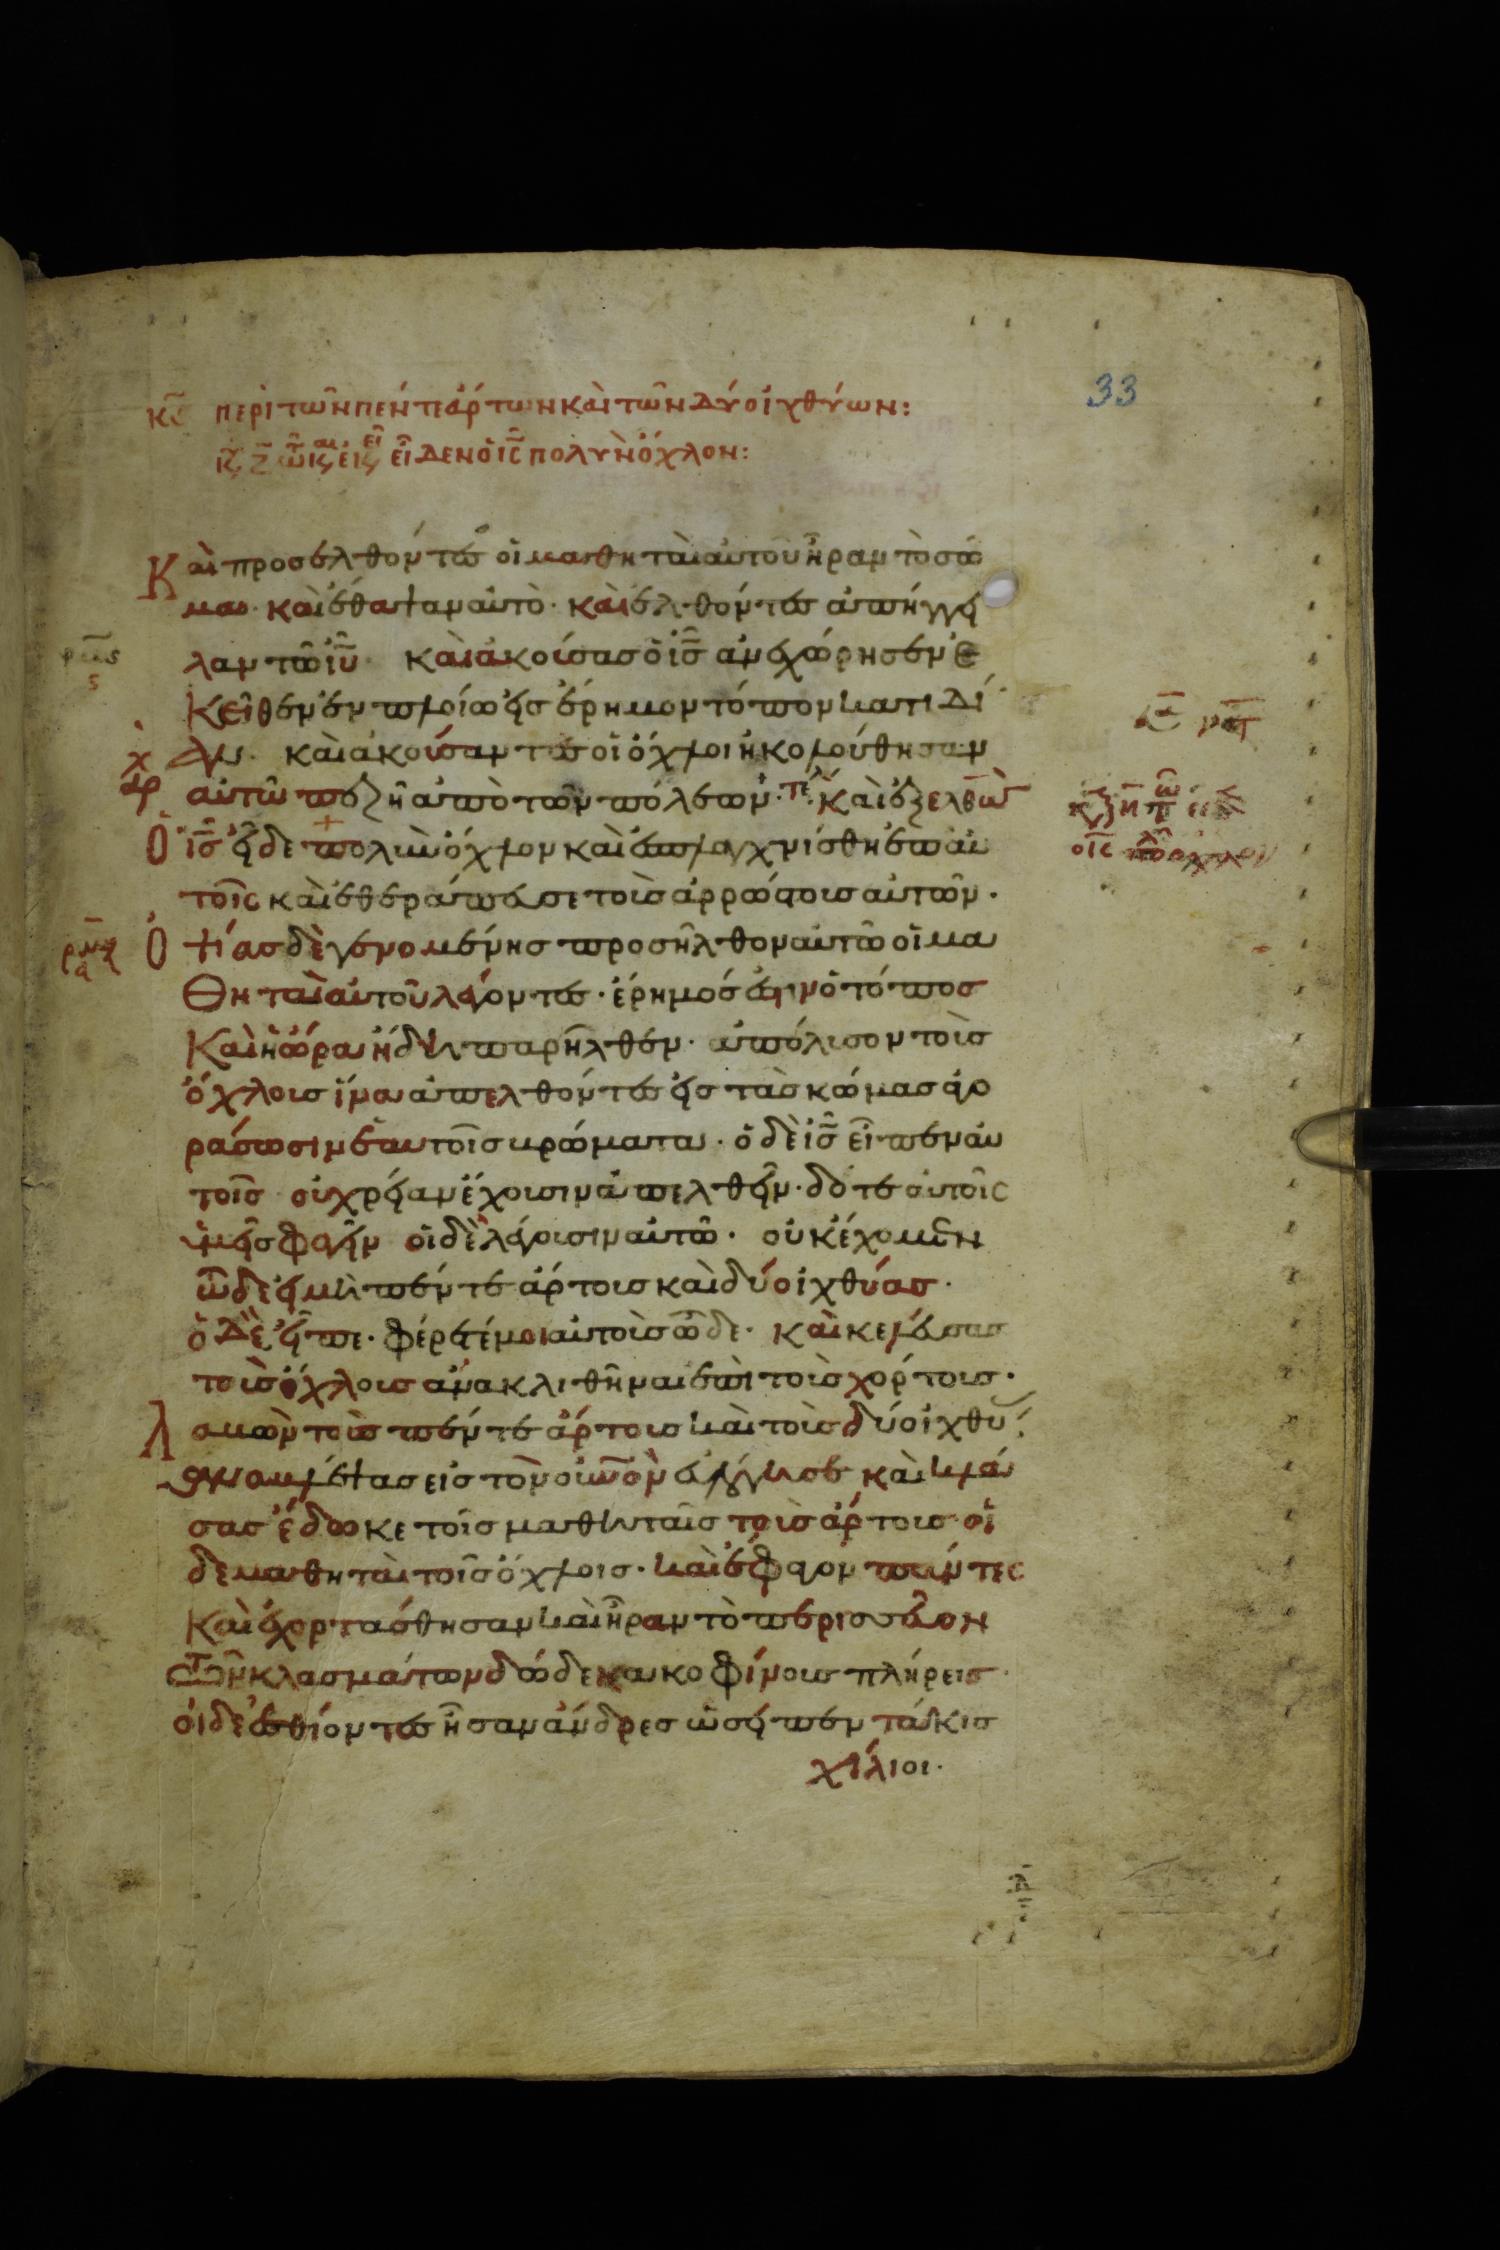 33
κϛ περὶ τῶν πέντε ἄρτων καὶ τῶν δύο ἰχθύων:
εἶδεν ὁ ις πολὺν ὄχλον:
Καὶ προσελθόντες οἱ μαθηταὶ αὐτοῦ ἦραν τὸ σῶ
μα· καὶ ἔθαψαν αὐτὸ· καὶ ἐλθόντες ἀπήγγει
λαν τῶ ιυ· καὶ ἀκούσας ὁ ις ἀνεχώρησεν ἐ
κεῖθεν ἐν πλοίω εἰς ἔρημον τόπον κατιδί
αν· καὶ ἀκούσαντες οἱ ὄχλοι ἠκολούθησαν
αὐτῶ πεζῆ ἀπὸ τῶν πόλεων· καὶ ἐξελθὼ
ὁ ις εἶδε πολὺν ὄχλον καὶ ἐσπλαγχνίσθη ἐπ αὐ
τοῖς καὶ ἐθεράπευσε τοὺς ἀρρώστους αὐτῶν·
Ὀψίας δὲ γενομένης προσῆλθον αὐτῶ οἱ μα
θηταὶ αὐτοῦ λέγοντες· ἔρημός ἐστιν ὁ τόπος
καὶ ἡ ὥρα ἤδη παρῆλθεν· ἀπόλυσον τοὺς
ὄχλους ἵνα ἀπελθόντες εἰς τὰς κώμας ἀγο
ράσωσιν ἑαυτοῖς βρώματα· ὁ δὲ ις εἶπεν αὐ
τοῖς οὐ χρείαν ἔχουσιν ἀπελθεῖν· δότε αὐτοῖς
ὑμεῖς φαγεῖν οἱ δὲ λέγουσιν αὐτῶ· οὐκ ἔχομεν
ὧδε εἰ μὴ πέντε ἄρτους καὶ δύο ἰχθύας·
ὁ δὲ εἶπε· φέρετέ μοι αὐτοὺς ὧδε· καὶ κελεύσας
τοὺς ὄχλους ἀνακλιθῆναι ἐπὶ τοὺς χόρτους·
λαβὼν τοὺς πέντε ἄρτους καὶ τοὺς δύο ἰχθύ
ας ἀναβλέψας εἰς τὸν οὐνον εὐλόγησε καὶ κλά
σας ἔδωκε τοῖς μαθηταῖς τοὺς ἄρτους οἱ
δὲ μαθηταὶ τοῖς ὄχλοις· καὶ ἔφαγον πάντες
καὶ ἐχορτάσθησαν καὶ ἦραν τὸ περισσεῦον
τῶν κλασμάτων δώδεκα κοφίνους πλήρεις·
οἱ δὲ ἐσθίοντες ἦσαν ἄνδρες ὡσεὶ πεντάκισ
χίλιοι·